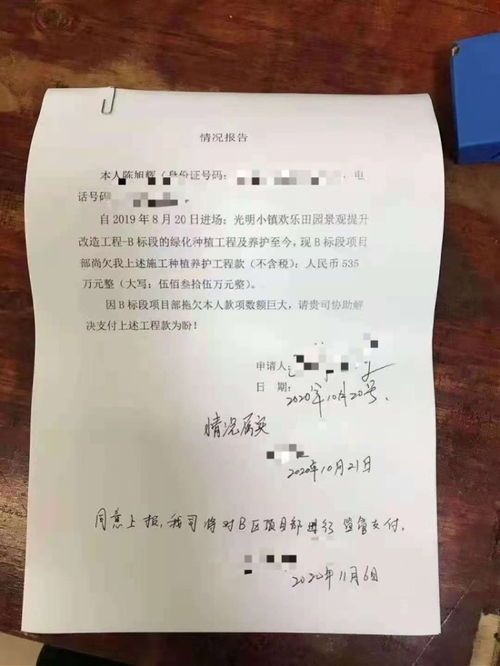 情况报告
本人陈旭辉（身份证号码：
，电
话号码
自2019年8月20日进场；光明小镇欢乐田园景观提升
改造工程-B标段的绿化种植工程及养护至今，现B标段项目
部尚欠我上述施工种植养护工程款（不含税）：人民币535
万元整（大写：伍佰叁拾伍万元整）。
因B标段项目部拖欠本人款项数额巨大，请贵司协助解
决支付上述工程款为盼！
申请人：
日 期：2020年10月20号.
情况属实
2020年10月21日
同意上报，我司将对B区项目部进行监管支付.
2020年11月6日